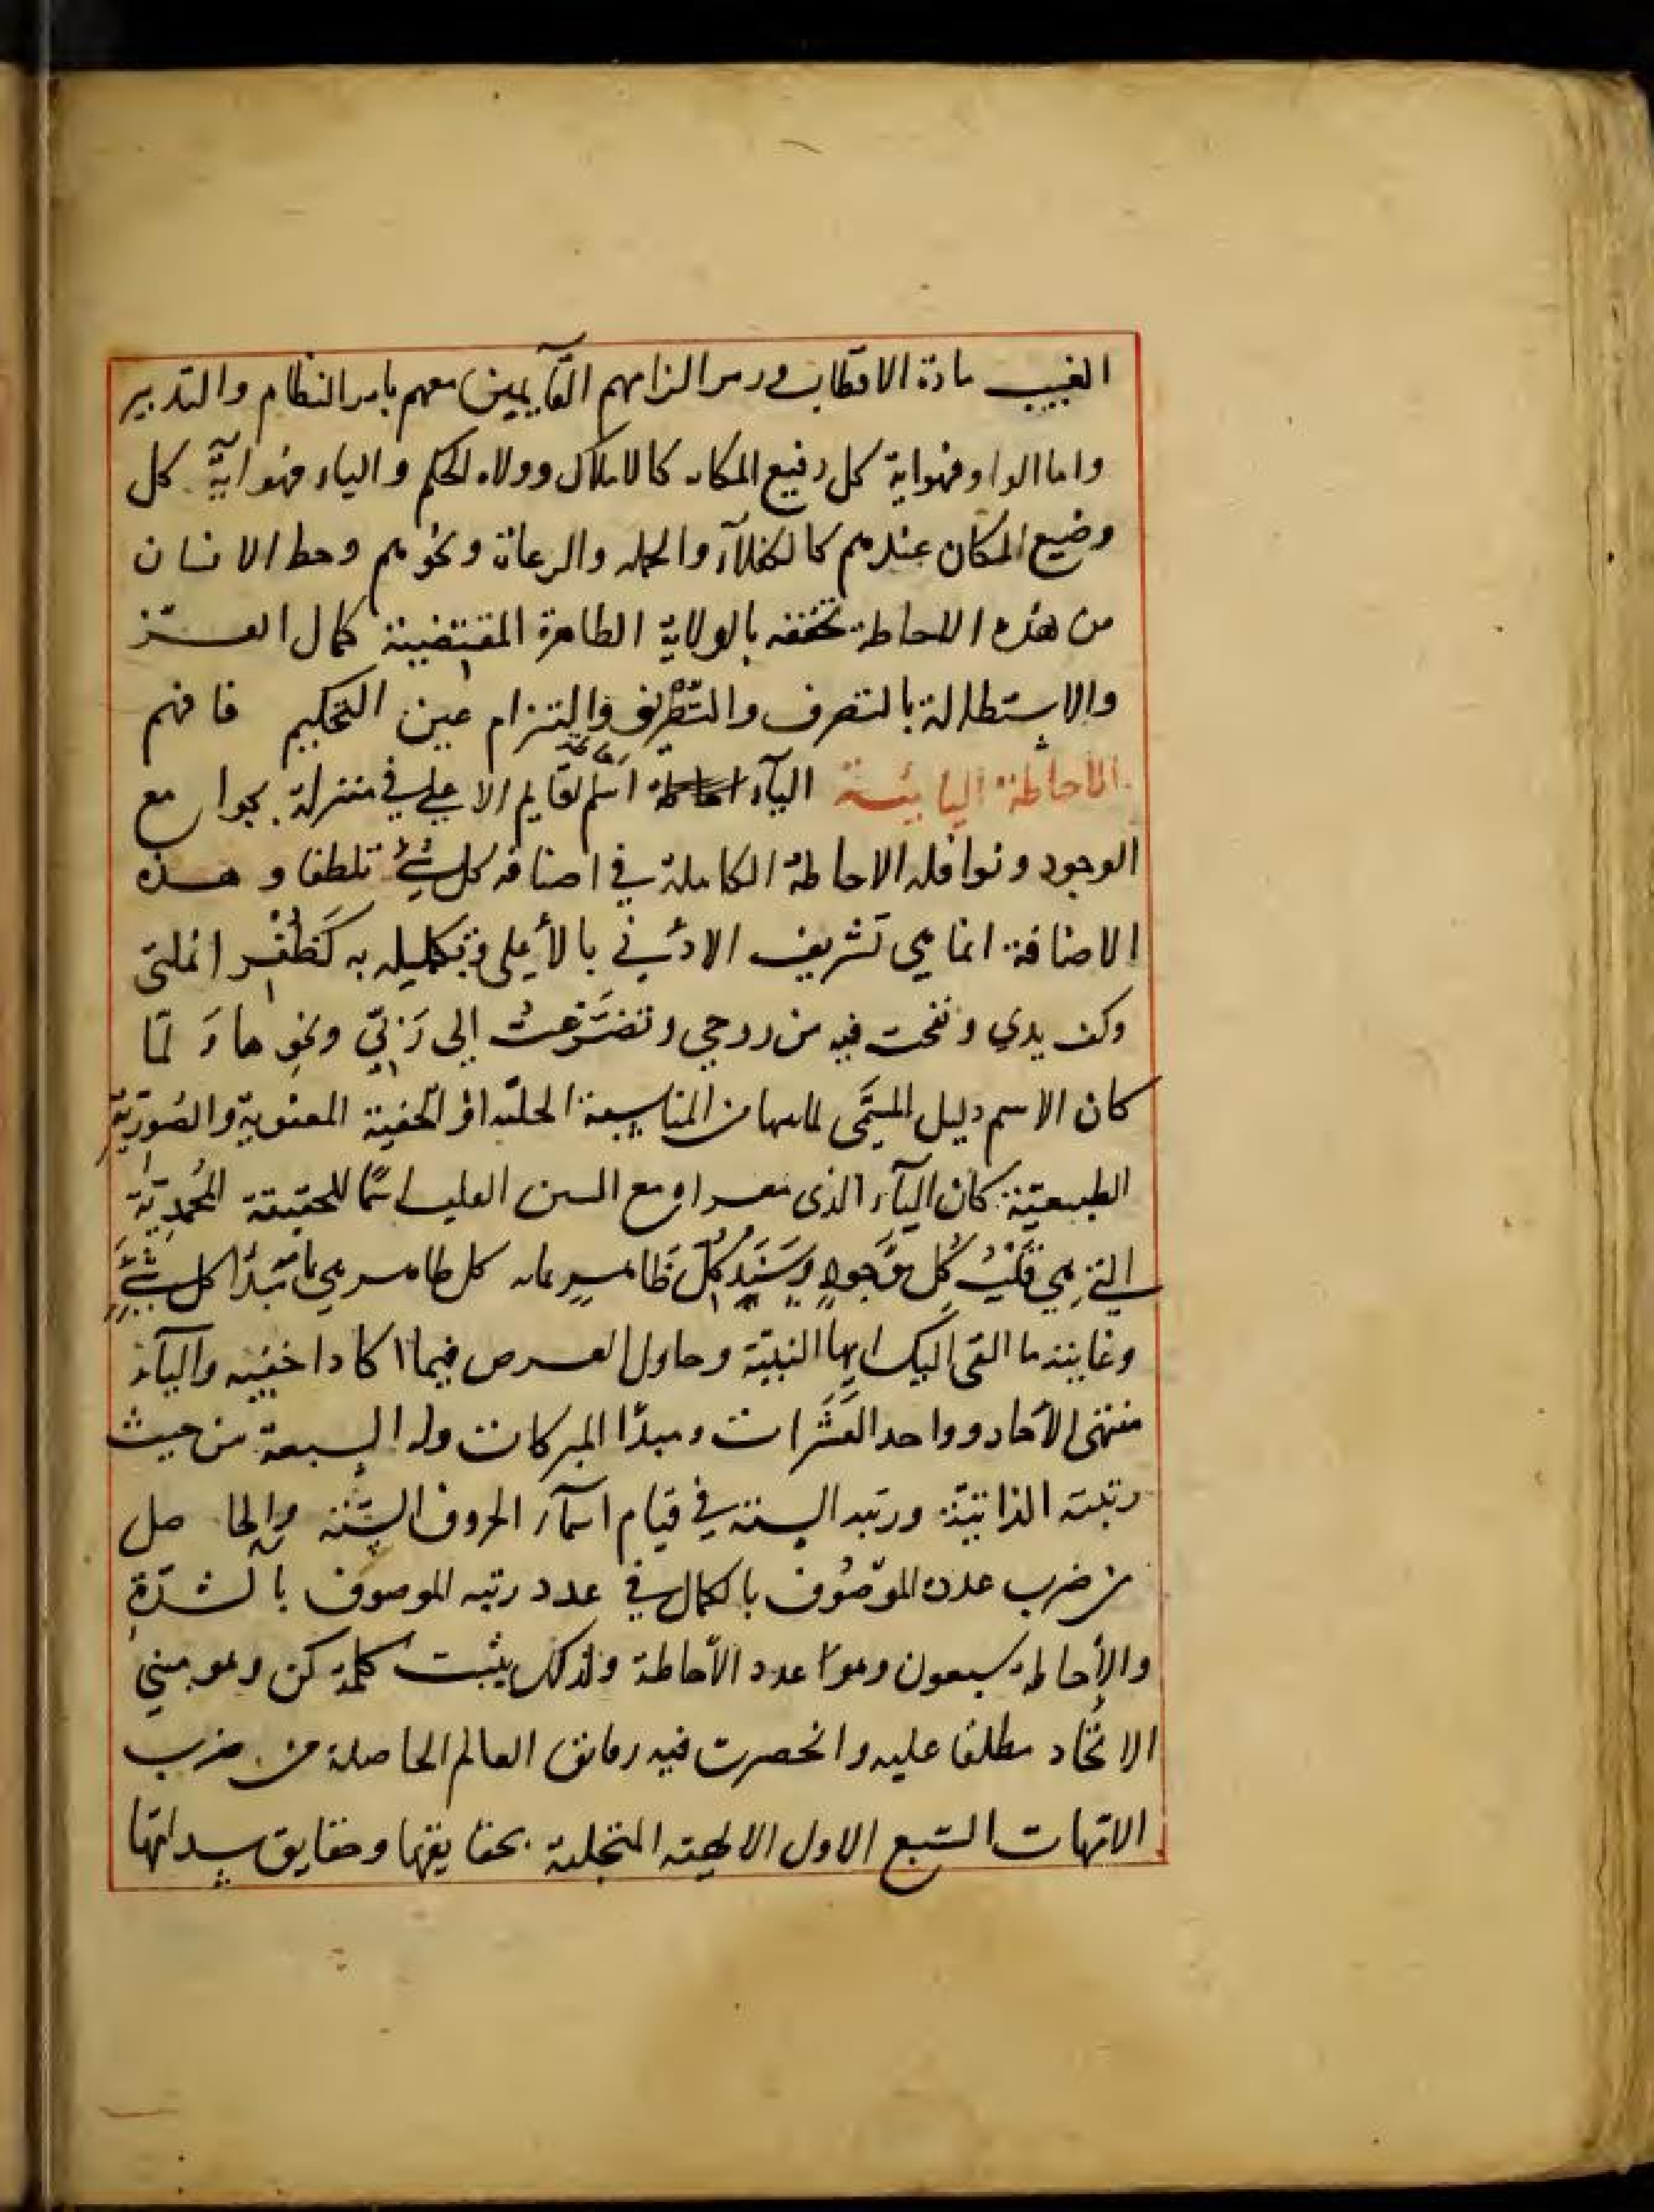 الغيب مادة الاقطاب و الزامهم القآيمين معهم بامر النظام والتدبير
واما الواو فهو اية كل رفيع المكان كالاملاك وولاه الحكم والياء فهو اية كل
وضيع المكان عندهم كالكفلآء والحمله والرعاة ونحوهم وحظ الانسان
من هذه الاحاطة تحققه بالولاية الظاهرة المقتضية كمال العز
والاستطالة بالتصرف والتصريف والتزام عين التحكيم فافهم
الاحاطة اليايئية اليآء اسم لقايم الاعلى في منزلة بجوامع
الوجود ونوافله الاحاطة الكاملة في اضافه كل شئ تلطفا وهذه
الاضافة انما هي تشريف الادنى بالأعلى وتكميله به كظفر انملتى
وكف يدي ونفخت فيه من روحي وتضرعت إلى ربي ونحوها ولمّا
كان الاسم دليل المسمى لما بينهما من المناسبة الجليّه او الخفية المعنوية والصورية
الطبيعيّة كان اليآء الذى مع السين اسمًا للحقيقة المحمدية
التي هي قلب كل وجود وسند كل ظاهر كل ظاهر هي مبدأ كل شئ
وغايته ما القى اليك ايها النبيّة وحاول الغرض فيما اكاد اخفيه واليآء
منتهى الآحاد وواحد العشرات ومبدأ المركبات وله السبعة من حيث
رتبته الذاتيّة ورتبه الستة في قيام اسمآء الحروف الستّه والحاصل
من ضرب عدد الموصوف بالكمال في عدد رتبه الموصوف بالشدّة
والأحاطة سبعون وهو عدد الأحاطة ولذلك يثبت كلمة كن وهو مبنى
الاتحاد مطلقا عليه وانحصرت فيه رقائق العالم الحاصلة من ضرب
الامّهات السّبع الاول الالهيّه المتجلية بحقايقها وحقايق سدانتها